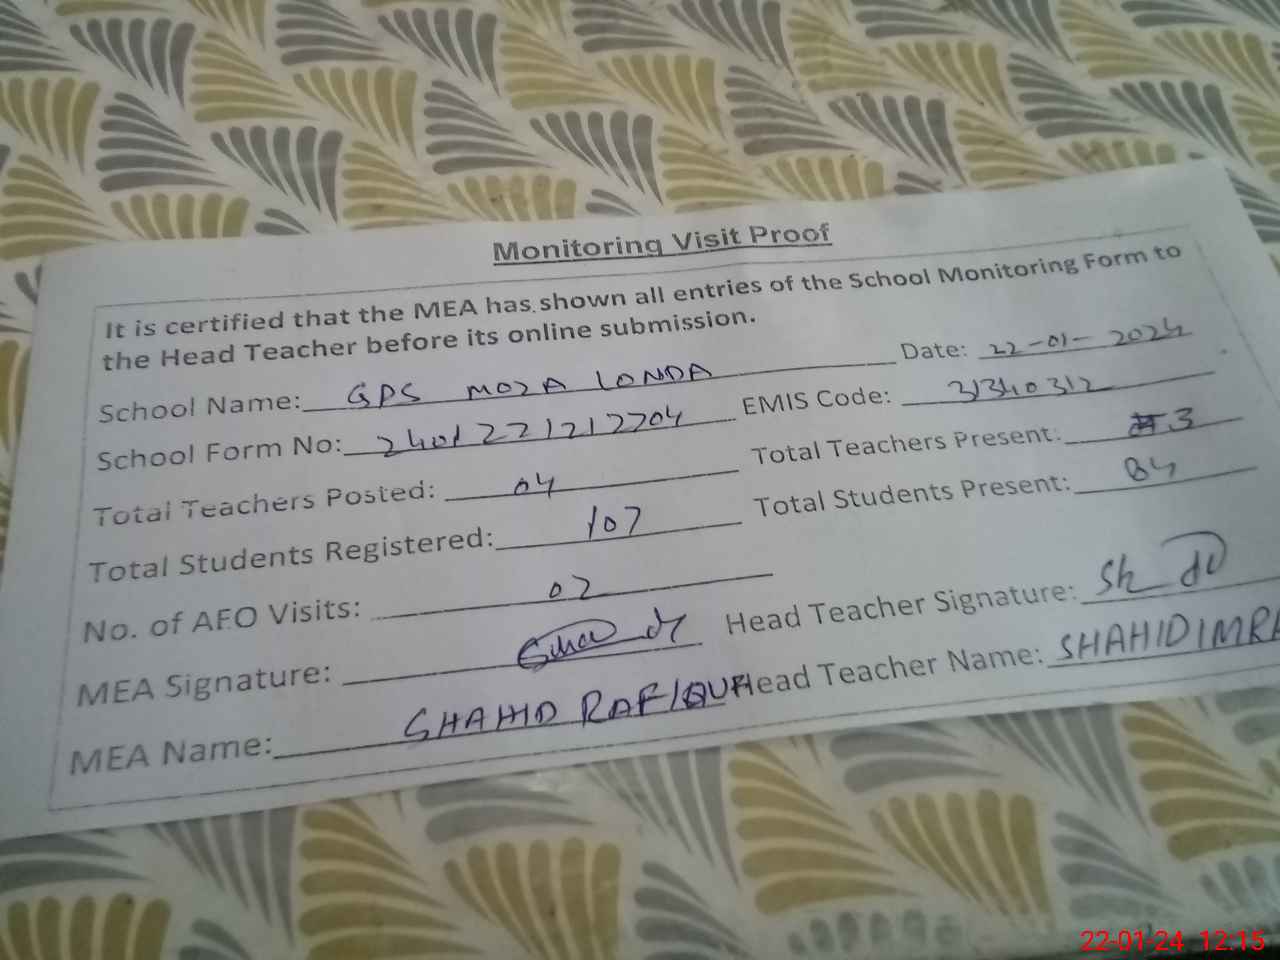 Monitoring Visit Proof
It is certified that the MEA has shown all entries of the School Monitoring Form to
the Head Teacher before its online submission.
School Name: GPS MOZA LONDA Date: 22-01-2024
School Form No: 2401221212204 EMIS Code: 31340312
Total Teachers Posted: 04 Total Teachers Present: 3
Total Students Registered: 107 Total Students Present: 84
No. of AEO Visits: 02
MEA Signature: Head Teacher Signature:
MEA Name: SHAHID RAFIQUE Head Teacher Name: SHAHID IMRA
22-01-24 12:15